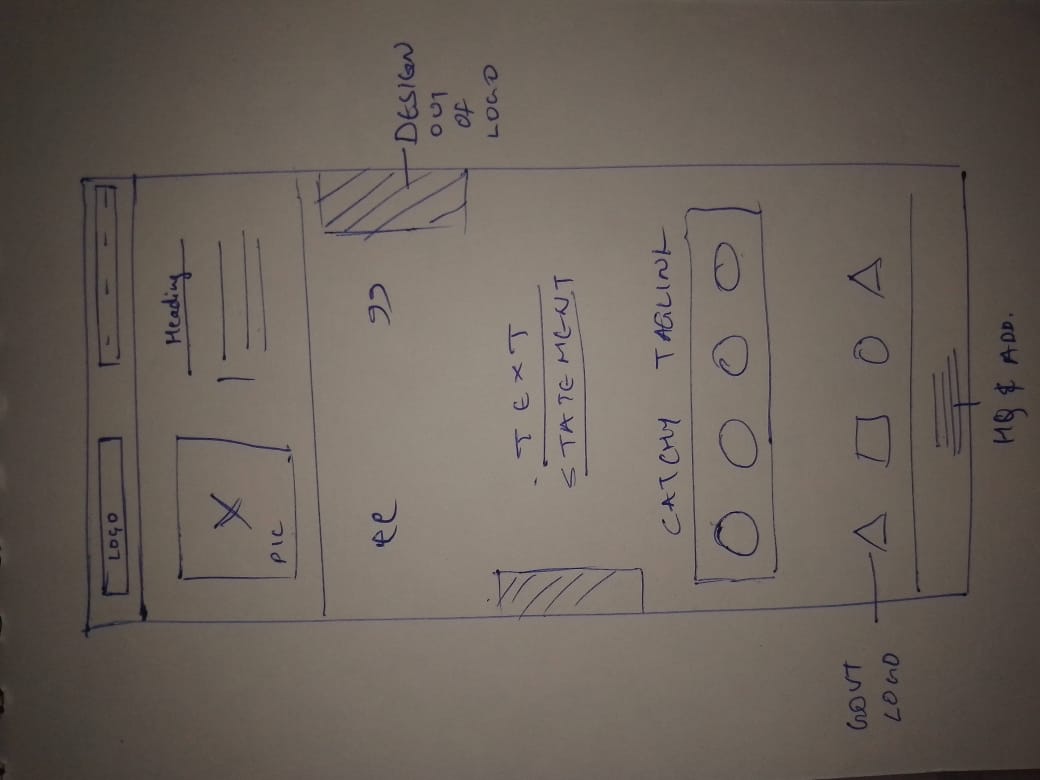 LOGO
Heading
PIC
DESIGN
OUT
OF
LOGO
TEXT
STATEMENT
CATCHY TAGLINE
GOVT
LOGO
HQ & ADD.